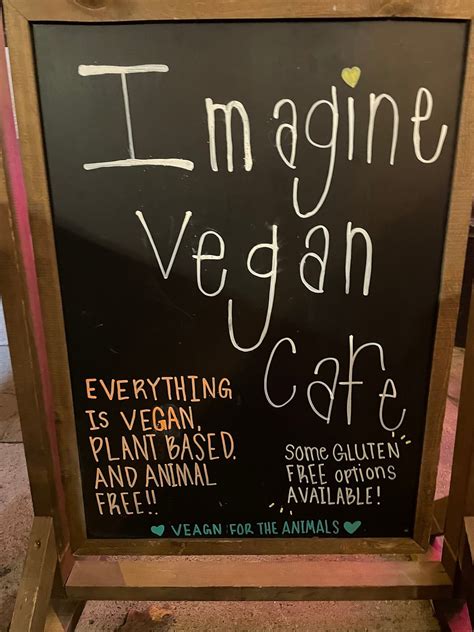 Imagine
Vegan
Cafe
EVERYTHING
IS VEGAN,
PLANT BASED,
AND ANIMAL
FREE!!
Some GLUTEN
FREE options
AVAILABLE!
VEAGN FOR THE ANIMALS